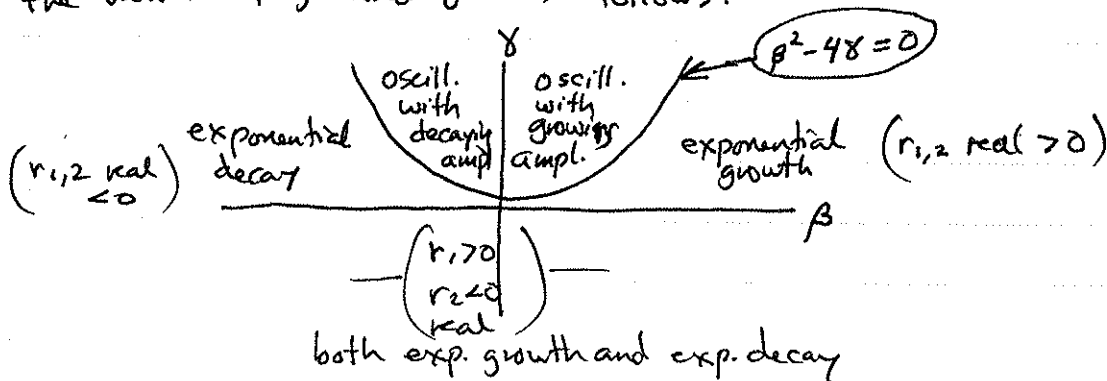 follows:
γ
β²-4γ=0
oscill. with decaying ampl
oscill. with growing ampl.
exponential decay
(r₁,₂ real <0)
exponential growth
(r₁,₂ real >0)
β
(r₁>0
r₂<0
real)
both exp. growth and exp. decay